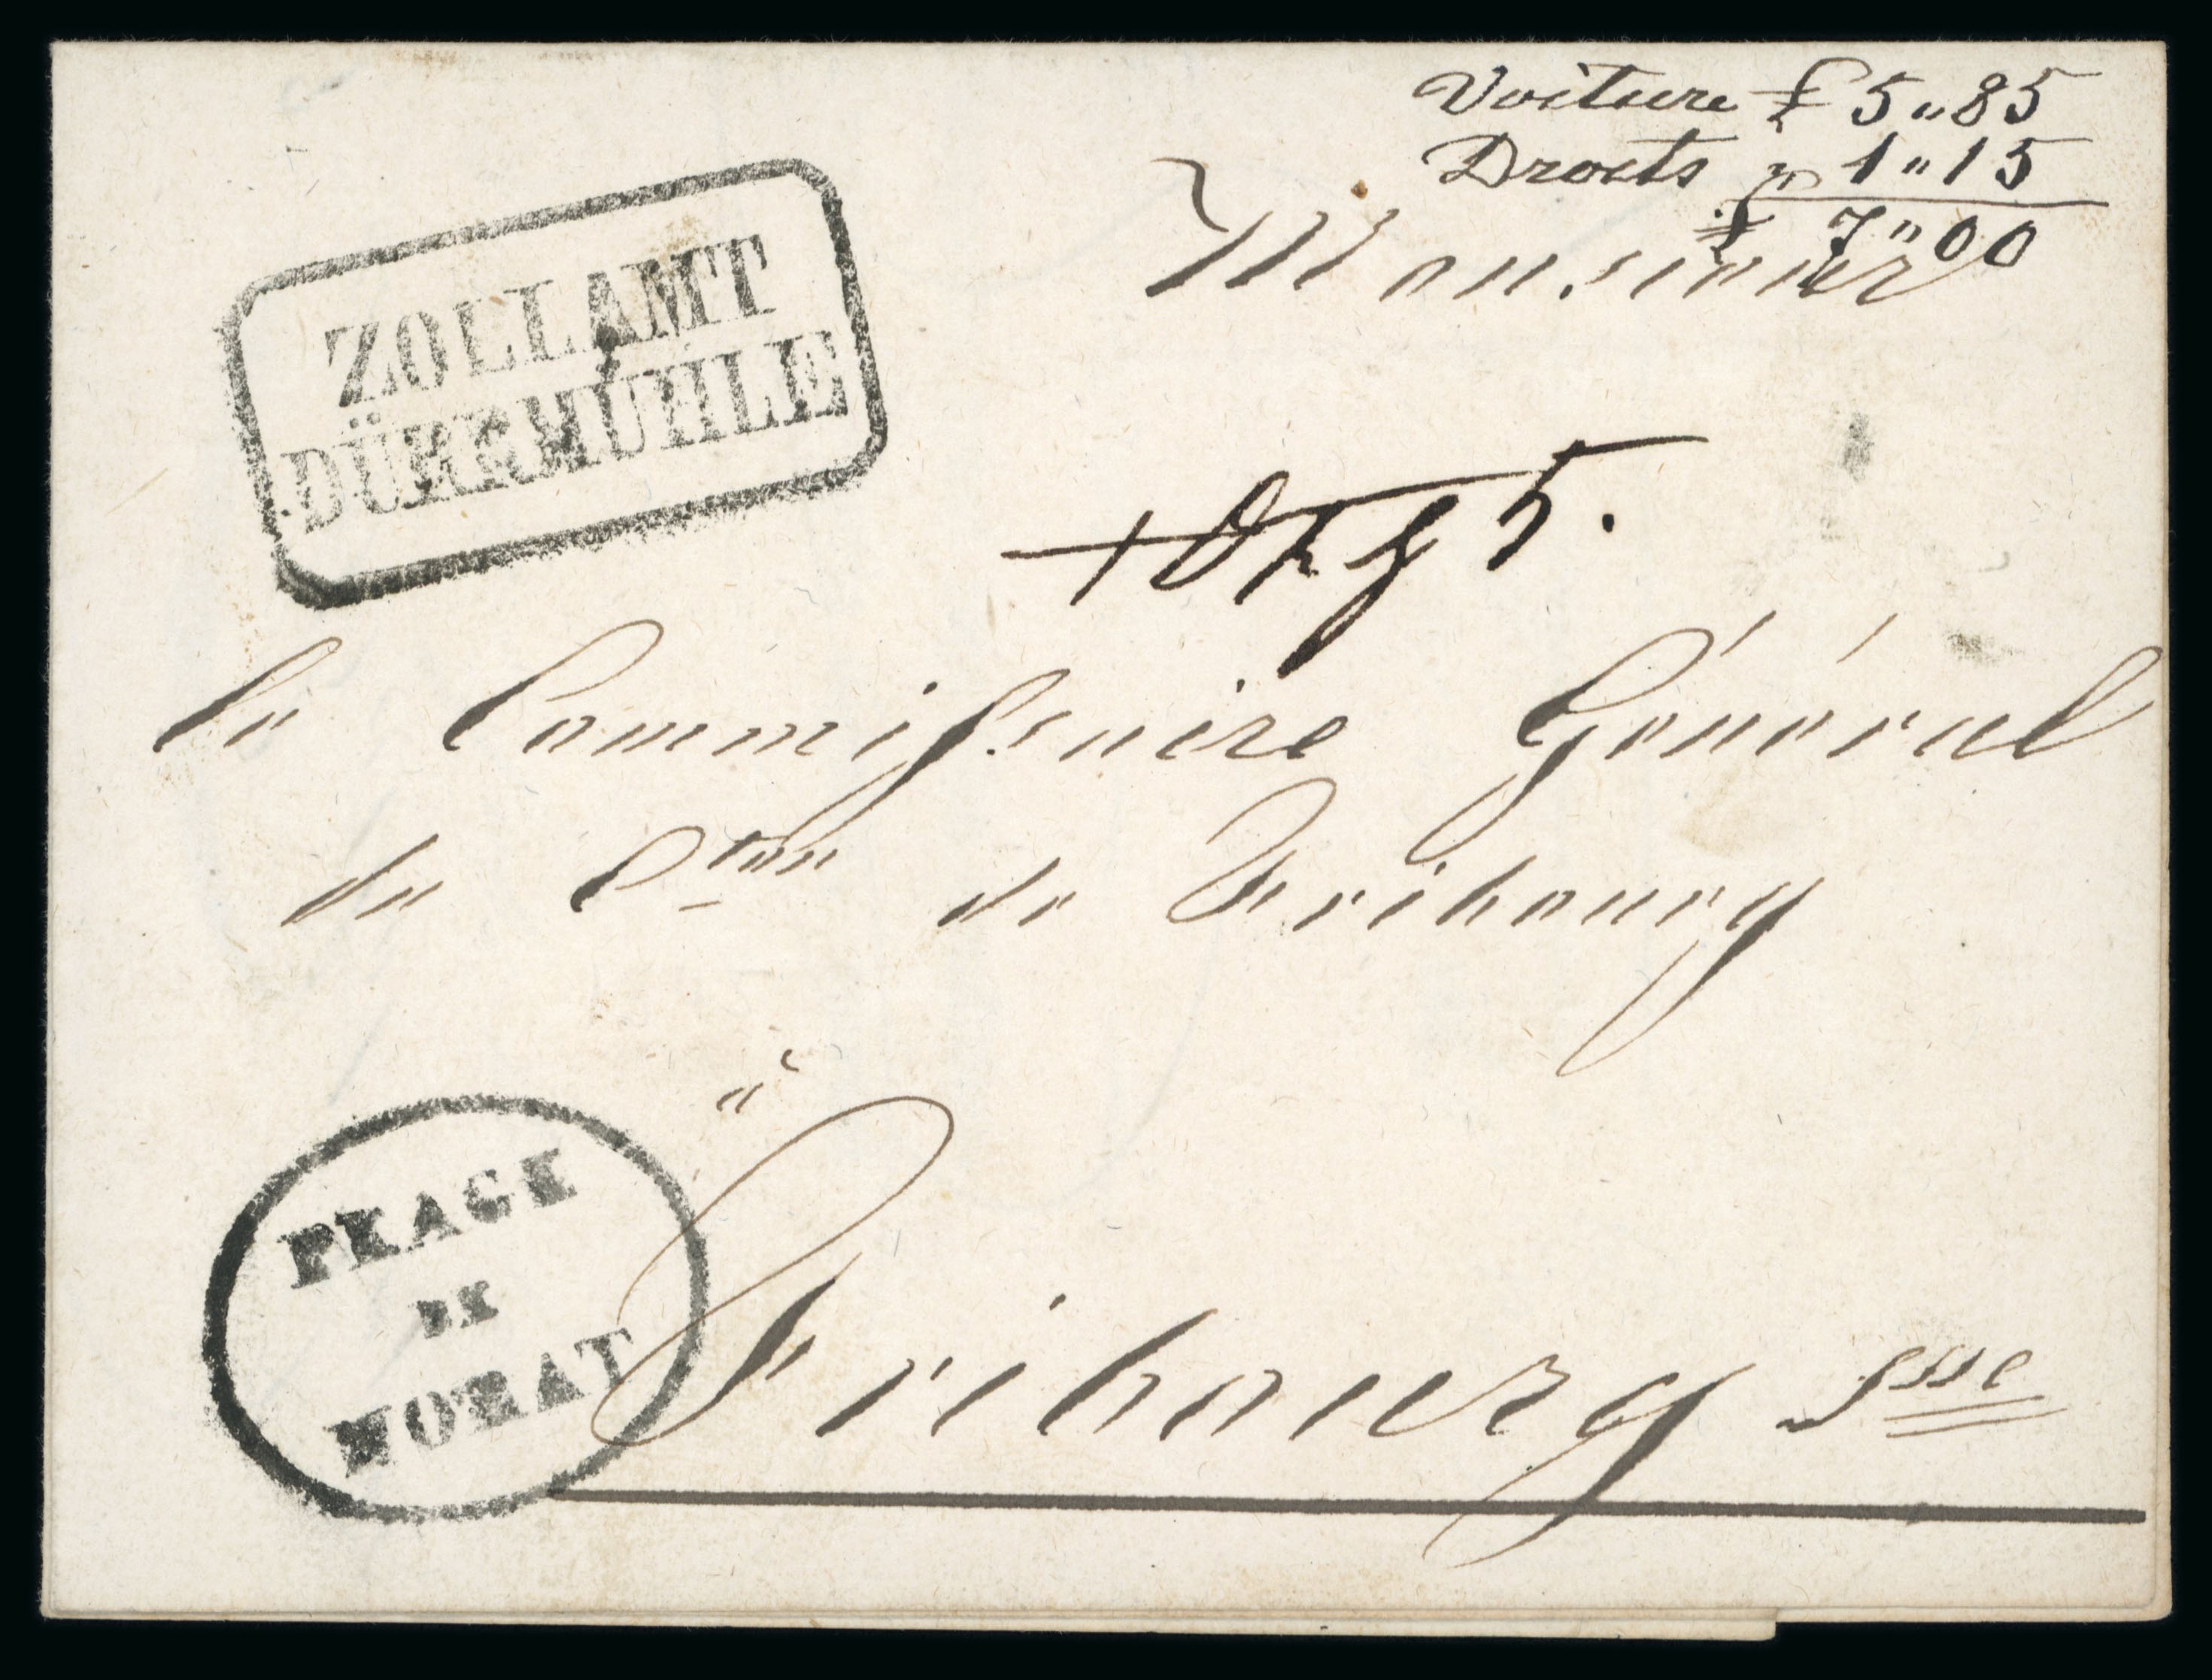 Voiture £ 5 „ 85
Droits „ 1 „ 15
£ 7 „ 00
Monsieur
ZOLLAMT
DÜRRMÜHLE
le Commissaire Général
du Cton de Fribourg
à
PEAGE
DE
MORAT
Fribourg Ssse